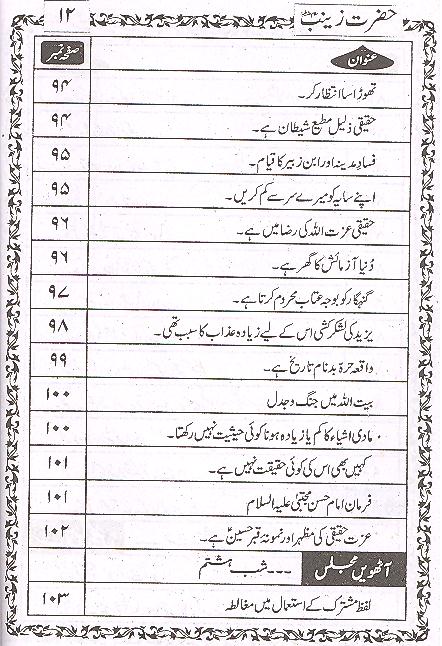 حضرت زینب ۱۲
عنوان صفحہ نمبر
تھوڑا سا انتظار کر۔ ۹۴
حقیقی ذلیل مطیع شیطان ہے۔ ۹۴
فسادِ مدینہ اور ابن زبیر کا قیام۔ ۹۵
اپنے سایہ کو میرے سر سے کم کریں۔ ۹۵
حقیقی عزت اللہ کی رضا میں ہے۔ ۹۶
دُنیا آزمائش کا گھر ہے۔ ۹۶
گنہگار کو بوجہ عتاب محروم کرتا ہے۔ ۹۷
یزید کی لشکر کشی اس کے لیے زیادہ عذاب کا سبب تھی۔ ۹۸
واقعہ حرہ بدنام تاریخ ہے۔ ۹۹
بیت اللہ میں جنگ وجدل ۱۰۰
مادی اشیاء کا کم یا زیادہ ہونا کوئی حیثیت نہیں رکھتا۔ ۱۰۰
کہیں بھی اس کی کوئی حقیقت نہیں ہے۔ ۱۰۱
فرمان امام حسن مجتبیٰ علیہ السلام ۱۰۱
عزت حقیقی کی مظہر اور نمونہ قبر حسینؑ ہے۔ ۱۰۲
آٹھویں مجلس ۔۔۔ شب ہشتم
لفظ مشترک کے استعمال میں مغالطہ ۱۰۳